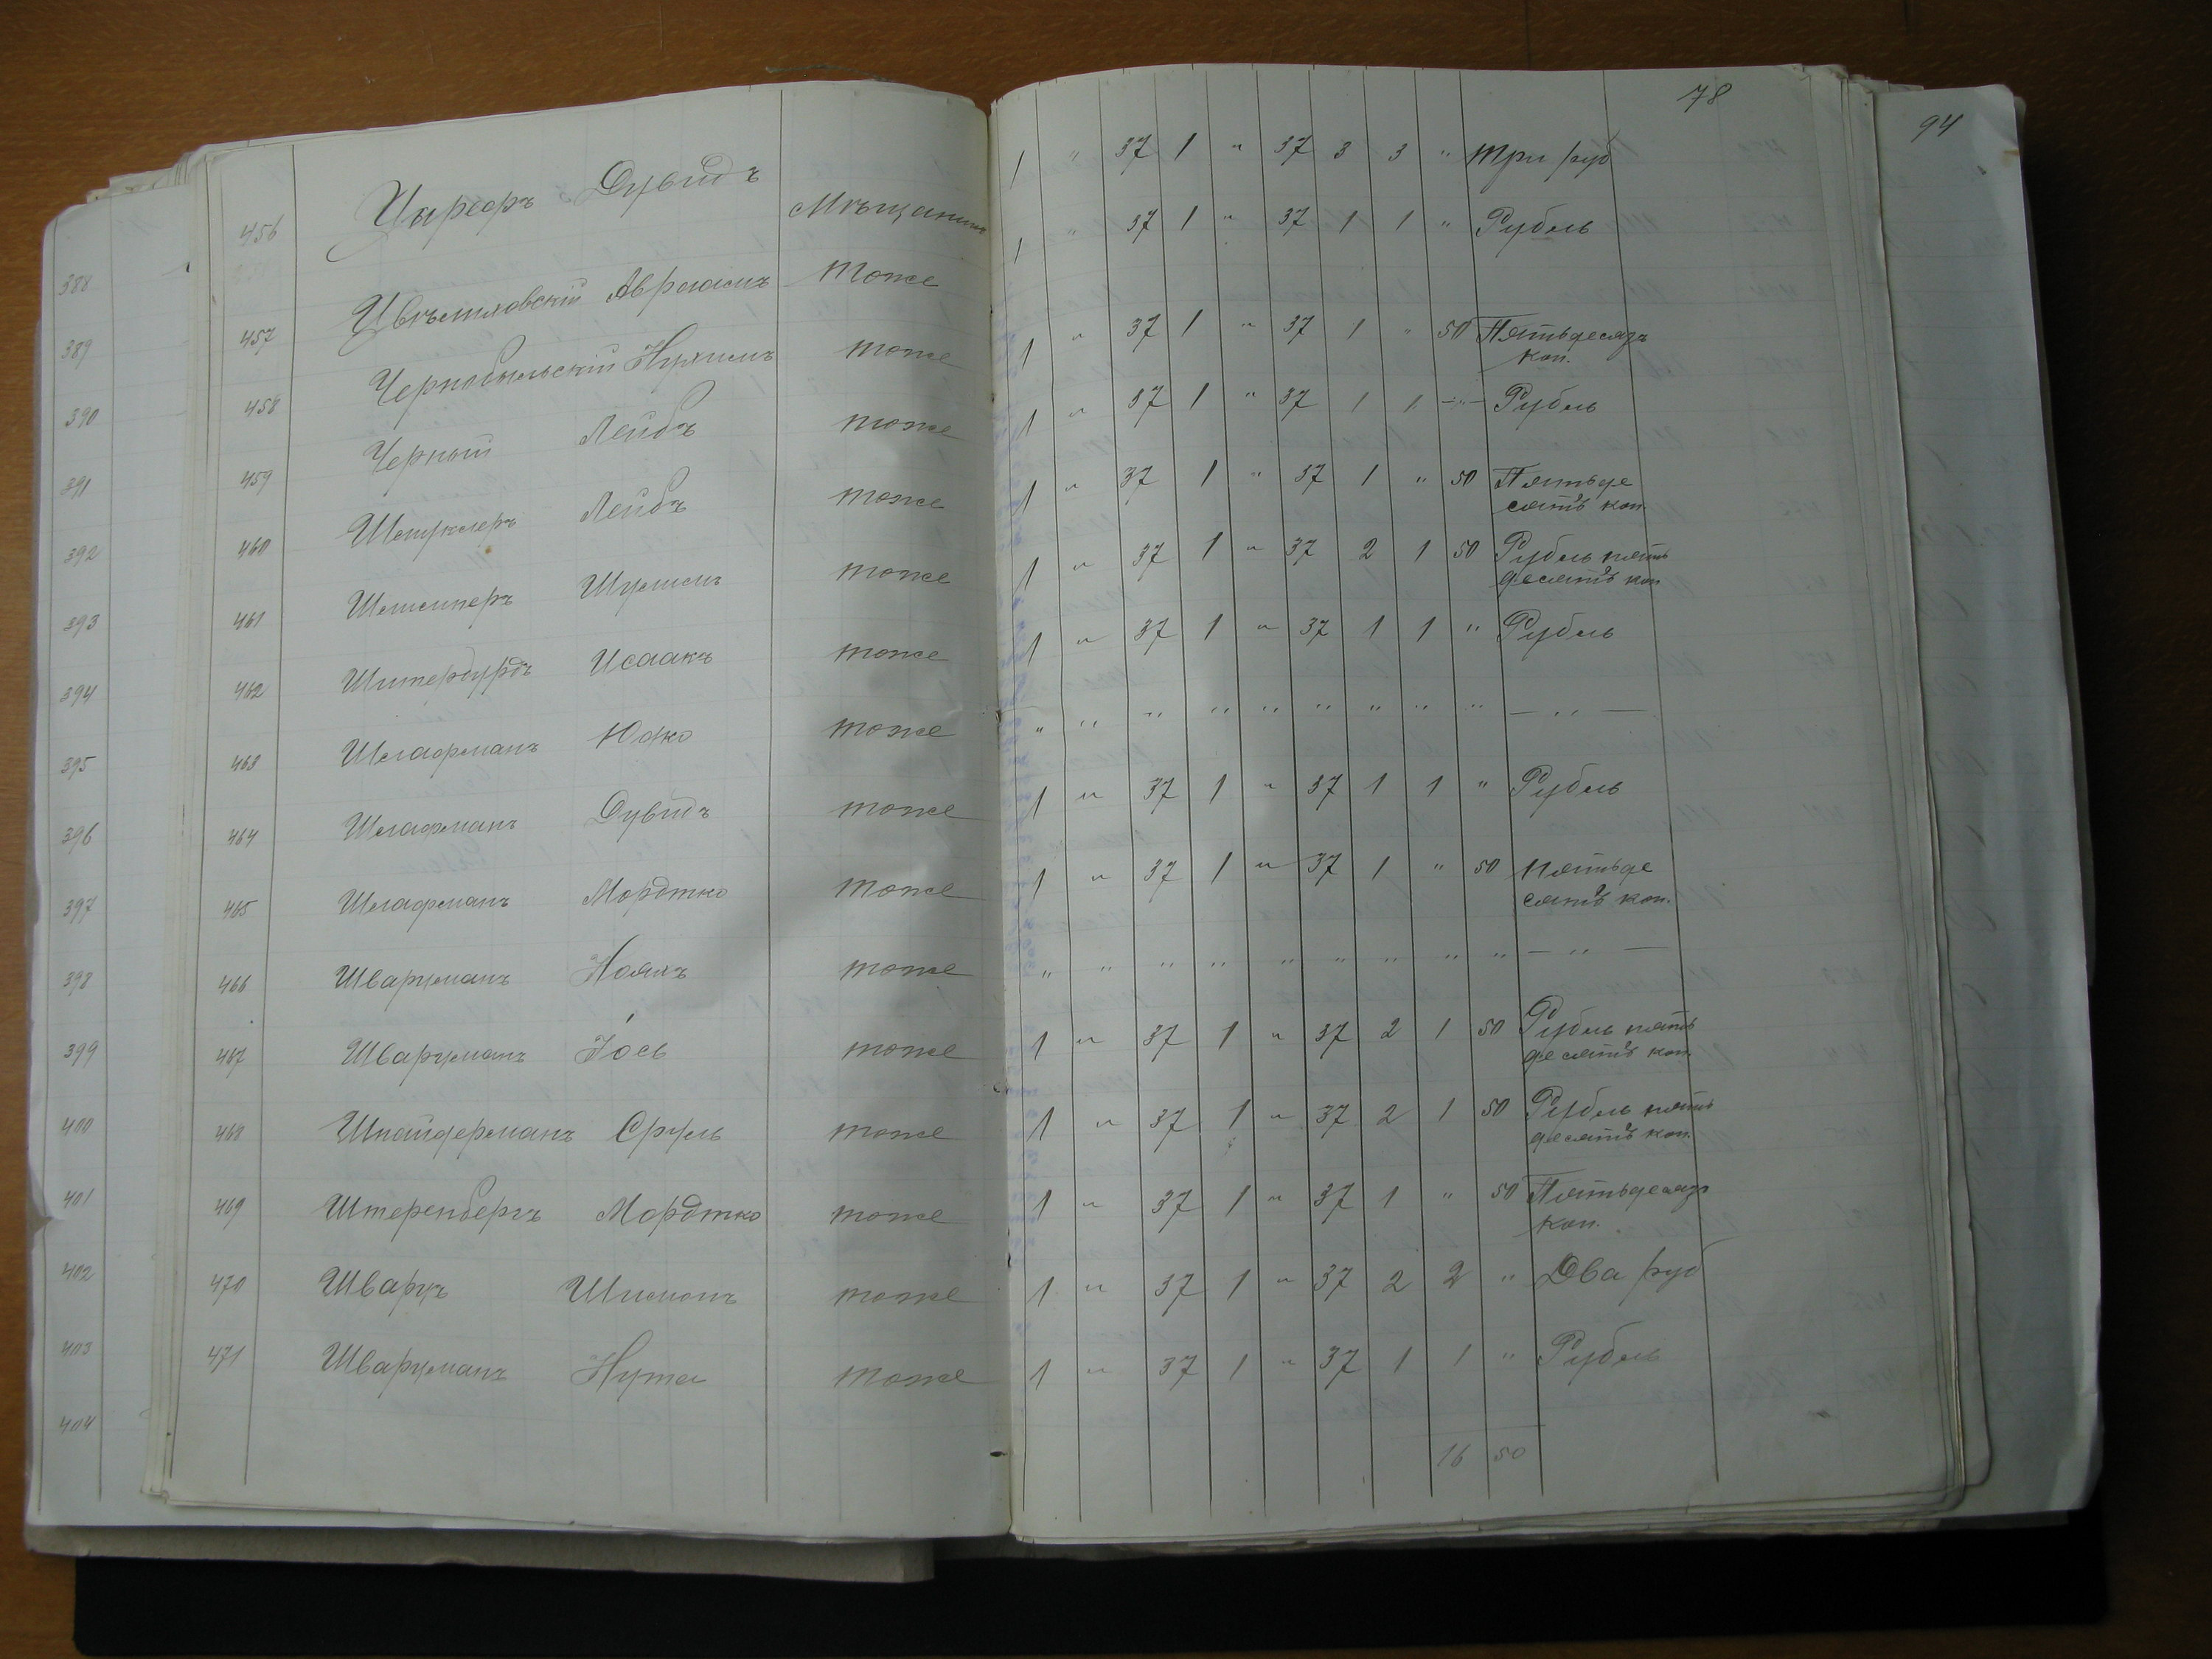 78
94
456 Цирферъ Дувидъ Мѣщанинъ 1 " 37 1 " 37 3 3 " Три руб
457 Цвѣтловскій Авраамъ тоже 1 " 37 1 " 37 1 1 " Рубль
458 Чернобыльскій Нухимъ тоже 1 " 37 1 " 37 1 " 50 Пятьдесятъ
коп.
459 Черный Лейбъ тоже 1 " 37 1 " 37 1 1 -"- Рубль
460 Лейбъ тоже 1 " 37 1 " 37 1 " 50 Пятьде
сятъ коп.
461 Шулимъ тоже 1 " 37 1 " 37 2 1 50 Рубль пять
десятъ коп
462 Исаакъ тоже 1 " 37 1 " 37 1 1 " Рубль
463 Шлафманъ Юдко тоже " " " " " " " " " — " —
464 Шлафманъ Дувидъ тоже 1 " 37 1 " 37 1 1 " Рубль
465 Шлафманъ Мордтко тоже 1 " 37 1 " 37 1 " 50 Пятьде
сятъ коп.
466 Шварцманъ тоже " " " " " " " " " — " —
467 Шварцманъ Іось тоже 1 " 37 1 " 37 2 1 50 Рубль пять
десятъ коп.
468 Шнайдерманъ Сруль тоже 1 " 37 1 " 37 2 1 50 Рубль пять
десятъ коп.
469 Штеренбергъ Мордтко тоже 1 " 37 1 " 37 1 " 50 Пятьдесятъ
коп.
470 Шварцъ Шимонъ тоже 1 " 37 1 " 37 2 2 " Два руб
471 Шварцманъ Нута тоже 1 " 37 1 " 37 1 1 " Рубль
16 50
388
389
390
391
392
393
394
395
396
397
398
399
400
401
402
403
404